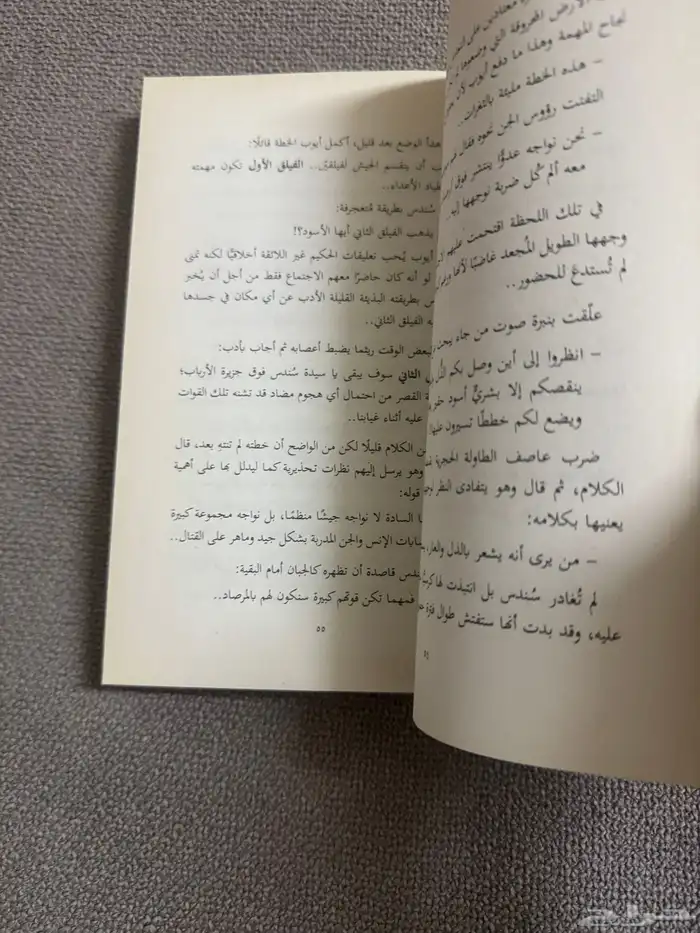 معتادين على
الأرض المحروقة التي وضعوها
نجاح المهمة وهذا ما دفع أيوب لأن
– هذه الخطة مليئة بالثغرات..
التفتت رؤوس الجن نحوه فقال
– نحن نواجه عدوًّا ينتشر فوق
معه ألم كُل ضربة نوجهها إليه
في تلك اللحظة اقتحمت عليهم
وجهها الطويل المُجعد غاضبًا لأنها
لم تُستدعَ للحضور..
علّقت بنبرة صوت من جاء يبحث
– انظروا إلى أين وصل بكم الذُّل
ينقصكم إلا بشريٌّ أسود
ويضع لكم خططًا تسيرون عليها
ضرب عاصف الطاولة الحجرية
الكلام، ثم قال وهو يتفادى النظر
يعنيها بكلامه:
– من يرى أنه يشعر بالذل والعار
لم تُغادر سُندس بل انتبذت لها
عليه، وقد بدت أنها ستفتش طوال فترة
٥٤
هدأ الوضع بعد قليل، أكمل أيوب الخطة قائلًا:
أن ينقسم الجيش لفيلقين.. الفيلق الأول تكون مهمته
الأعداء..
سُندس بطريقة مُتعجرفة:
يذهب الفيلق الثاني أيها الأسود؟!
أيوب يُحب تعليقات الحكيم غير اللائقة أخلاقيًّا لكنه تمنى
لو أنه كان حاضرًا معهم الاجتماع فقط من أجل أن يُخبر
بطريقته البذيئة القليلة الأدب عن أي مكان في جسدها
الفيلق الثاني..
لبعض الوقت ريثما يضبط أعصابه ثم أجاب بأدب:
الثاني سوف يبقى يا سيدة سُندس فوق جزيرة الأرباب؛
القصر من احتمال أي هجوم مضاد قد تشنه تلك القوات
عليه أثناء غيابنا..
الكلام قليلًا لكن من الواضح أن خطته لم تنتهِ بعد، قال
وهو يرسل إليهم نظرات تحذيرية كما ليدلل بها على أهمية
قوله:
السادة لا نواجه جيشًا منظمًا، بل نواجه مجموعة كبيرة
الإنس والجن المدربة بشكل جيد وماهر على القتال..
سُندس قاصدة أن تظهره كالجبان أمام البقية:
فمهما تكن قوتهم كبيرة سنكون لهم بالمرصاد..
٥٥
حراج